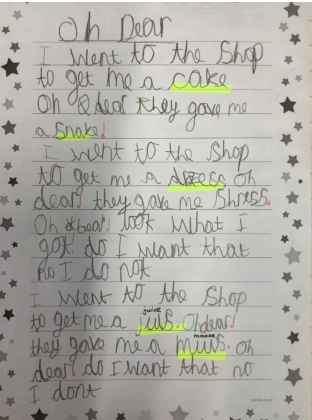 Oh Dear
I went to the Shop
to get me a cake
Oh dear they gave me
a snake!
I went to the Shop
to get me a dress oh
dear! they gave me Shress.
Oh dear! look what I
got! do I want that
no I do not
I went to the Shop
juice
to get me a juis. Oh dear!
moose
they gave me a muis. oh
dear! do I want that no
I dont